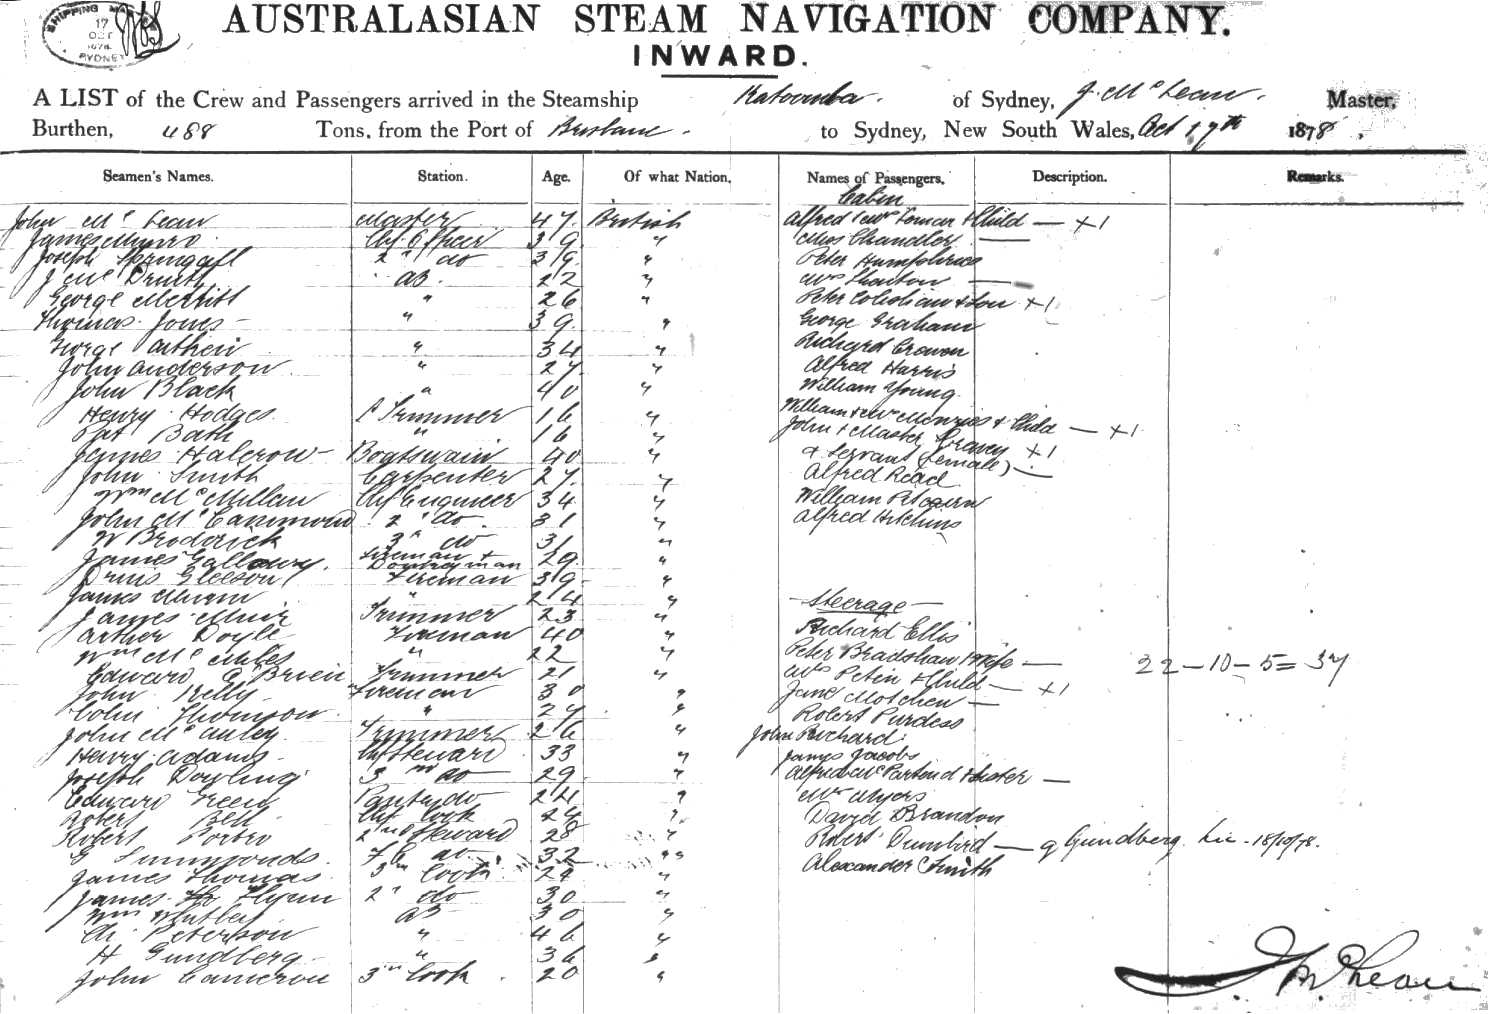 SHIPPING MA
17
OCT
1878
SYDNEY
AUSTRALASIAN STEAM NAVIGATION COMPANY.
INWARD.
A LIST of the Crew and Passengers arrived in the Steamship Katoomba. of Sydney, J. McLean. Master,
Burthen, 488 Tons, from the Port of Brisbane. to Sydney, New South Wales, Oct 17th 1878,
Seamen's Names. Station. Age. Of what Nation. Names of Passengers. Description. Remarks.
Cabin
John McLean Master 47. British Alfred & Mrs & Child — +1
James Munro Chf Officer 39 " Miss Chandler —
Joseph Springall 2" do 39 " Peter Humphries
J Mc AB. 22 " Mrs —
George Merritt " 26 " Peter & Son +1
Thomas Jones - " 39 " George Graham
George " 34 " Richard
John Anderson " 27 " Alfred Harris
John Black " 40 " William Young
Henry Hodges Trimmer 16 " William & Mrs Menzies & Child — +1
Pat Bath " 16 " John & Master +1
James Halcrow - Boatswain 40 " & Servant (female) —
John Smith Carpenter 27. " Alfred Read
Wm McMillan Chf Engineer 34 " William Pitcairn
John McCammond 2" do 31 " Alfred Hitchins
W Broderick 3" do 31 "
James Galloway. Fireman & Donkeyman 29 "
Gleeson Fireman 39 "
James " 24 " — Steerage —
James Muir Trimmer 23 " Richard Ellis
Arthur Doyle Fireman 40 " Peter Bradshaw & Wife —
Wm Mc " 22 " Mrs Peten & Child — +1
Edward O'Brien Trimmer 21 " Jane —
22 — 10 — 5 = 37
John Kelly Fireman 30 " Robert Purdess
Colin Thomson " 27 " John Richard
John McAuley Trimmer 26 " James Jacobs
Henry Adams - Chf Steward 33 " Alfred & Sister —
Joseph Dowling 3rd do 29 " Mrs Myers
Edward Green Pantry do 24 " David Brandon
Robert Bell Chf Cook 24 " Robert Dumbird — G Gundberg Lic - 18/10/78.
Robert Porteo 2nd Steward 28 " Alexander Smith
G Simmonds. do 32 "
James Thomas. 3rd Cook 24 "
James Flynn 2" do 30 "
Wm AB 30 "
Ch. Peterson " 46 "
H Gundberg - " 36 "
John Cameron 3rd Cook 20 "
J McLean